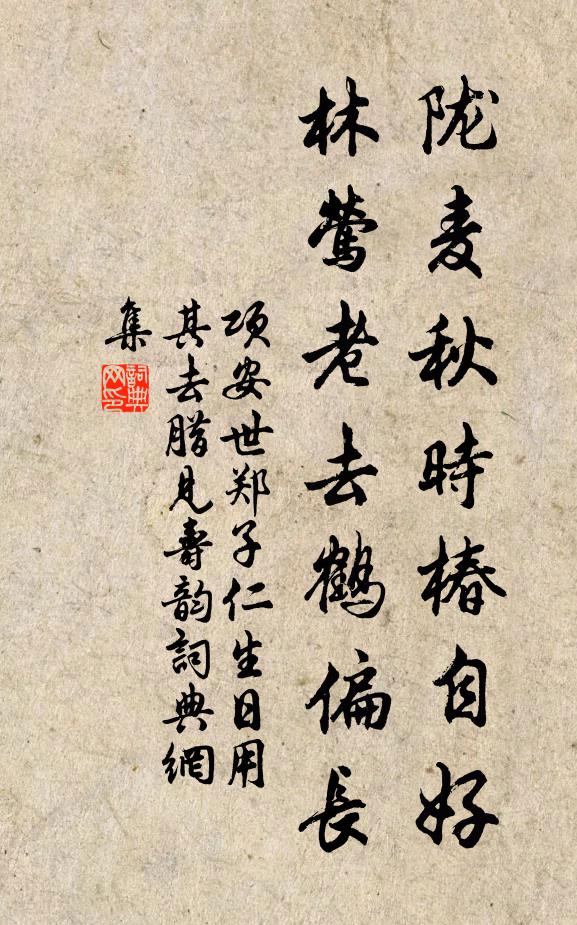 陇麦秋時椿自好
林莺老去鹤偏長
项安世郑子仁生日用
其去腊见寿韵詞典網
集
詞典
网印